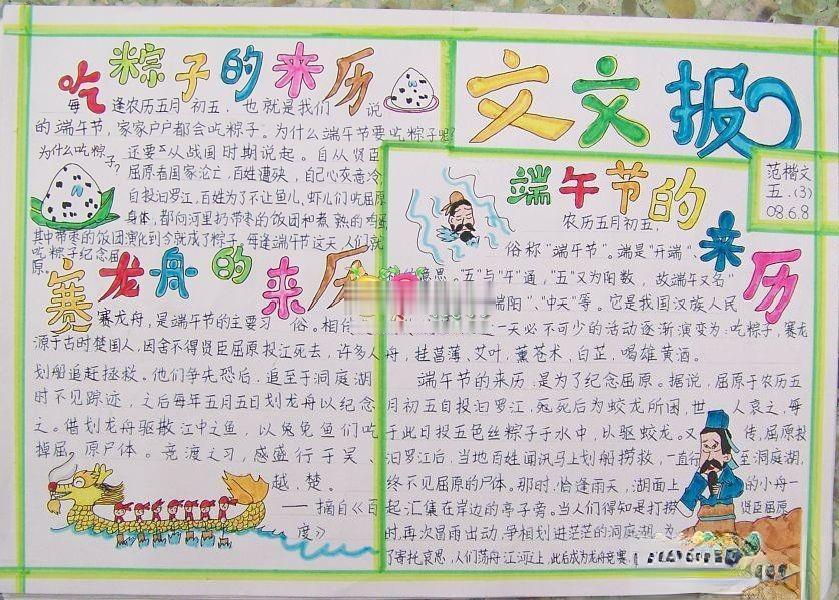 吃粽子的来历
每逢农历五月初五，也就是我们说
的端午节，家家户户都会吃粽子。为什么端午节要吃粽子呢？
为什么吃粽子？还要从战国时期说起。自从贤臣
屈原看国家沦亡，百姓遭殃，自己心灰意冷，
自投汨罗江，百姓为了不让鱼儿、虾儿们吃屈原
身体，都向河里扔带枣的饭团和煮熟的鸡蛋
其中带枣的饭团演化到今就成了粽子，每逢端午节这天，人们就
吃粽子纪念屈
原。
赛龙舟的来历
赛龙舟，是端午节的主要习俗。相传
源于古时楚国人，因舍不得贤臣屈原投江死去，许多人
划船追赶拯救。他们争先恐后，追至于洞庭湖
时不见踪迹，之后每年五月五日划龙舟以纪念
之。借划龙舟驱散江中之鱼，以免鱼们吃
掉屈原尸体。竞渡之习，盛行于吴、
越、楚。
——摘自《百
度》
文文报
范楷文
五.(3)
08.6.8
端午节的来历
农历五月初五，
俗称"端午节"。端是"开端"、
的意思。"五"与"午"通，"五"又为阳数，故端午又名"
端阳"、"中天"等。它是我国汉族人民
一天必不可少的活动逐渐演变为：吃粽子，赛龙
舟，挂菖蒲、艾叶，薰苍术，白芷，喝雄黄酒。
端午节的来历，是为了纪念屈原。据说，屈原于农历五
月初五自投汨罗江，死死后为蛟龙所困，世人哀之，每
于此日投五色丝粽子于水中，以驱蛟龙。又传，屈原投
汨罗江后，当地百姓闻讯马上划船捞救，一直行至洞庭湖，
终不见屈原的尸体。那时，恰逢雨天，湖面上的小舟一
起汇集在岸边的亭子旁。当人们得知是打捞贤臣屈原
时，再次冒雨出动，争相划进茫茫的洞庭湖。为
了寄托哀思，人们荡舟江河之上，此后成为龙舟竞赛。